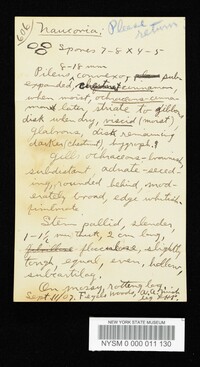 606
Naucoria,
Please return
Spores 7-8 X 4-5
8-18 mm
Pileus, convex, sub-
expanded, cinnamon,
when moist, ochraceous-
later, striate to
disk when dry, viscid (moist),
glabrous, disk remaining
darker (chestnut), hygroph.?
Gills ochraceous-brown,
subdistant, adnate-seced-
ing, rounded behind, mod-
erately broad, edge whitish-
fimbriate
Stem pallid, slender,
1-1½ mm thick, 2 cm long
fibrillose slightly
tough, equal, even, hollow,
subcartilag.
On mossy, rotting log,
Sept. 11/07. woods, Mich
NEW YORK STATE MUSEUM
NYSM 0 000 011 130